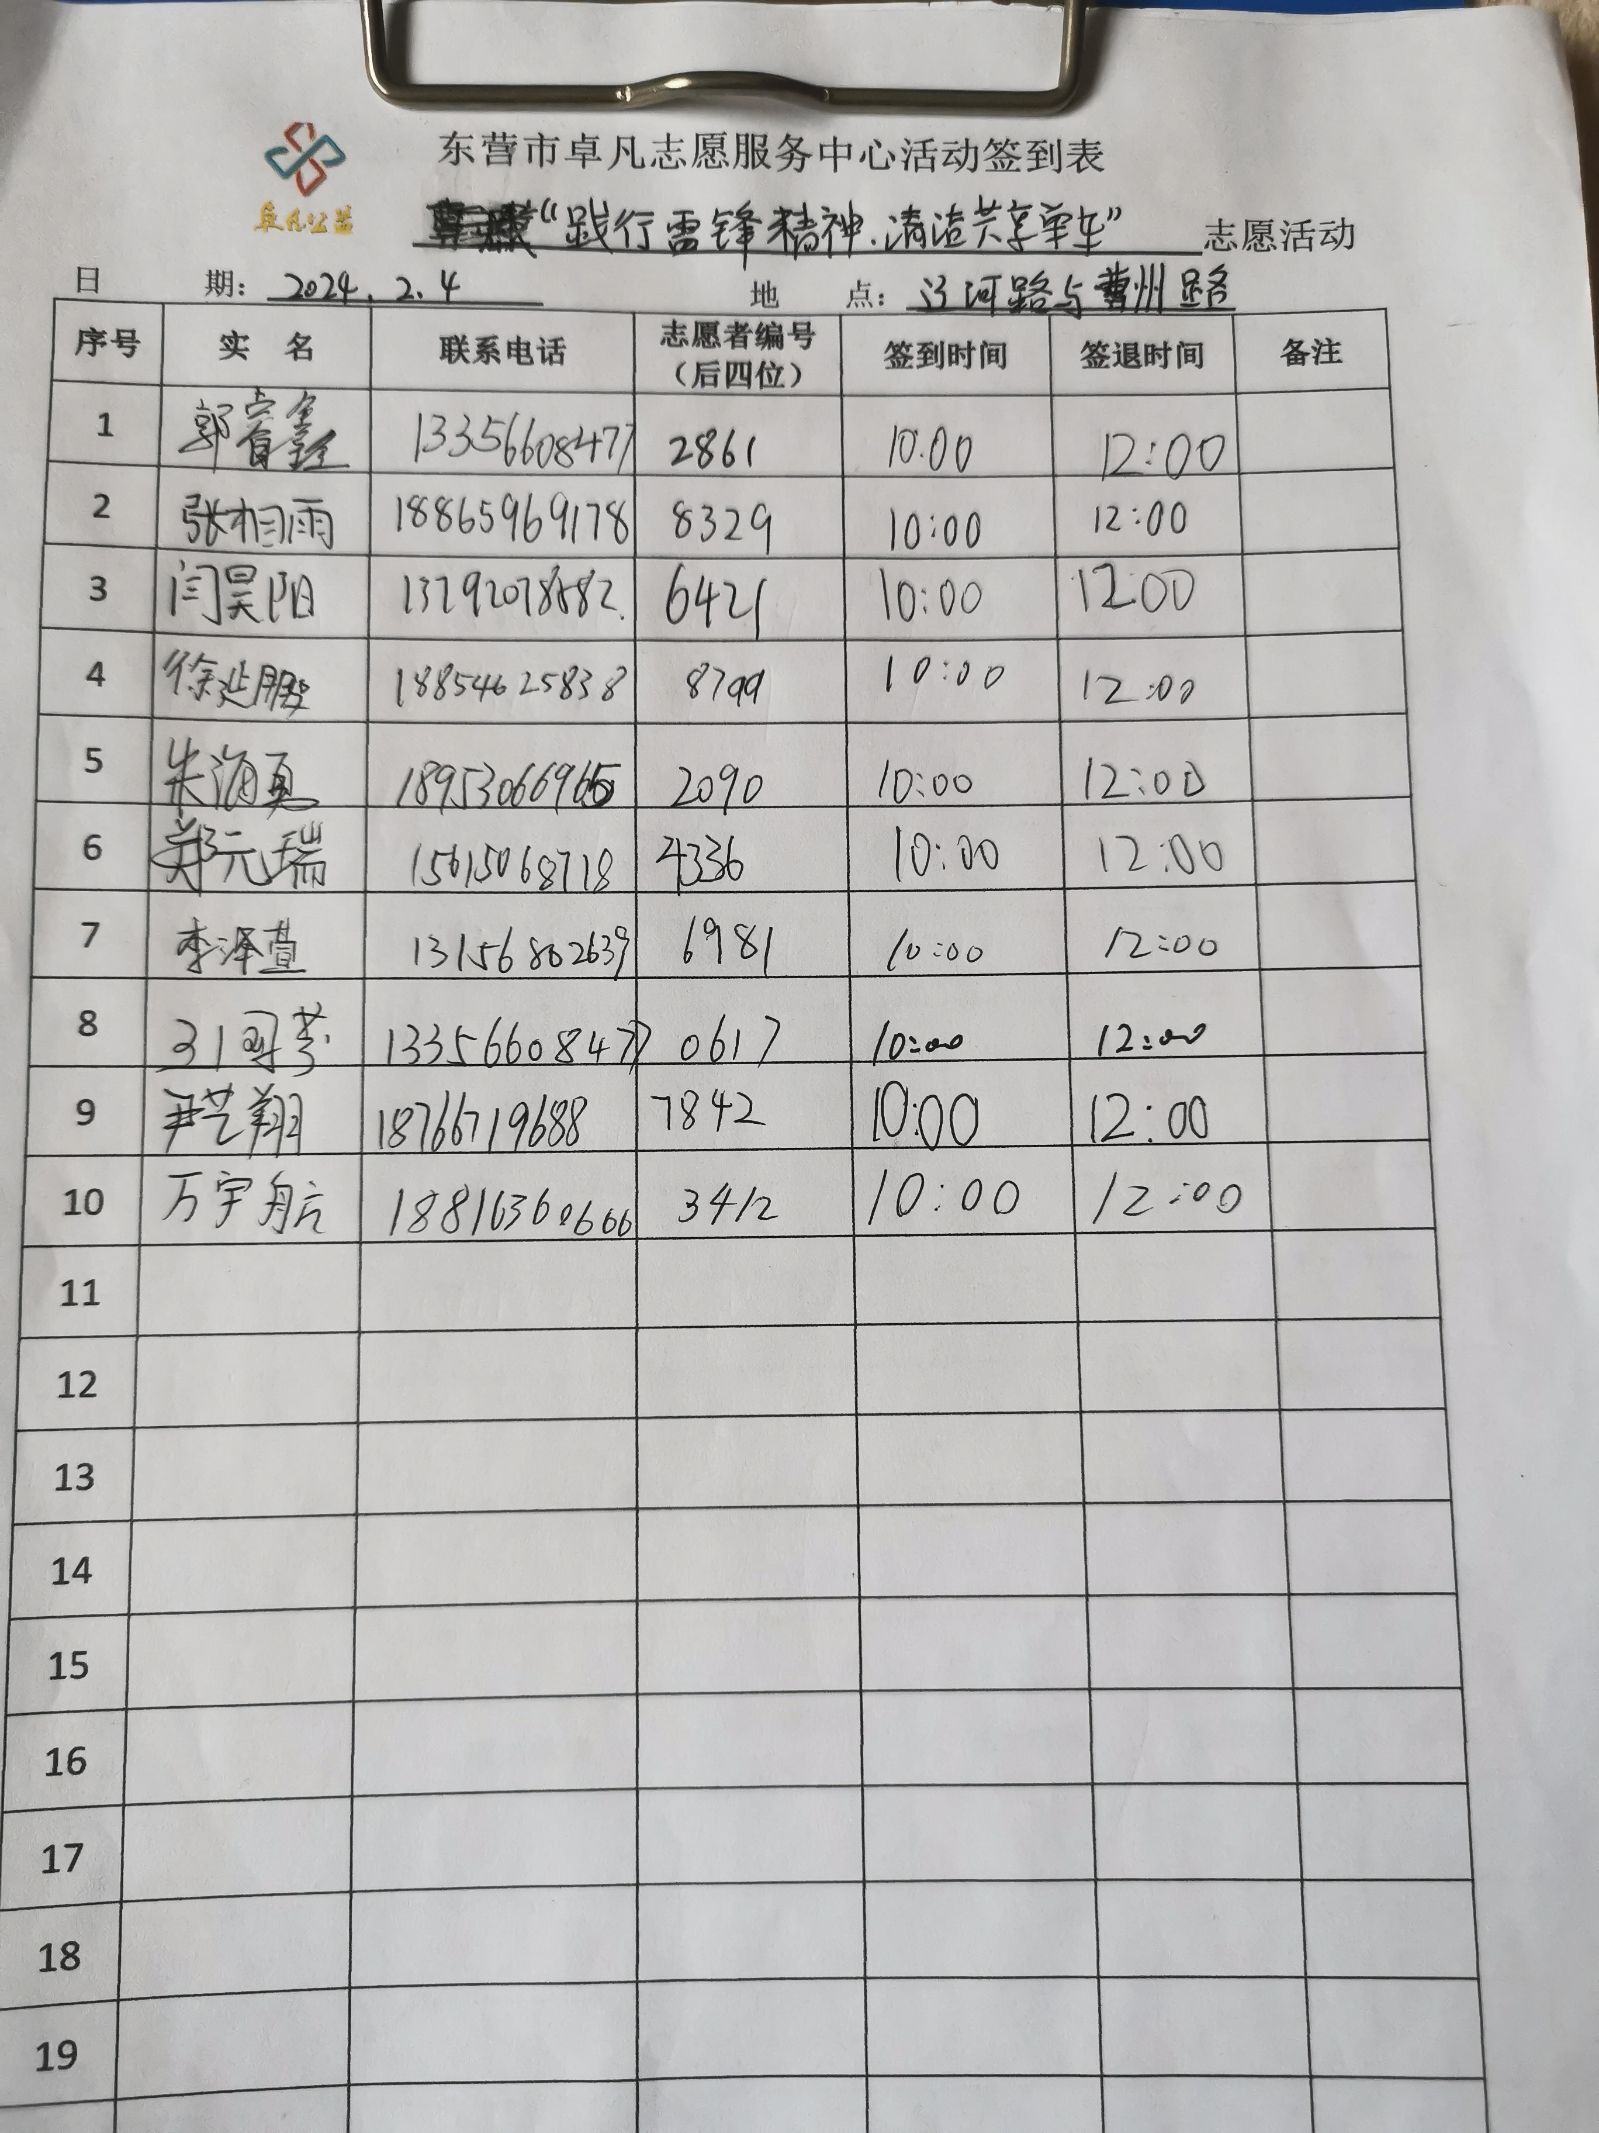 东营市卓凡志愿服务中心活动签到表
卓凡公益
“践行雷锋精神.清洁共享单车” 志愿活动
日 期: 2024.2.4 地 点: 辽河路与曹州路
序号 实 名 联系电话 志愿者编号（后四位） 签到时间 签退时间 备注
1 郭睿鑫 13356608477 2861 10:00 12:00
2 张相雨 18865969178 8329 10:00 12:00
3 闫昊阳 6421 10:00 12:00
4 徐延鹏 18854625838 8799 10:00 12:00
5 朱海 2090 10:00 12:00
6 郑元瑞 15615068718 4336 10:00 12:00
7 李泽萱 13156802639 6981 10:00 12:00
8 13356608477 0617 10:00 12:00
9 尹艺翔 18766719688 7842 10:00 12:00
10 万宇航 18816360666 3412 10:00 12:00
11
12
13
14
15
16
17
18
19